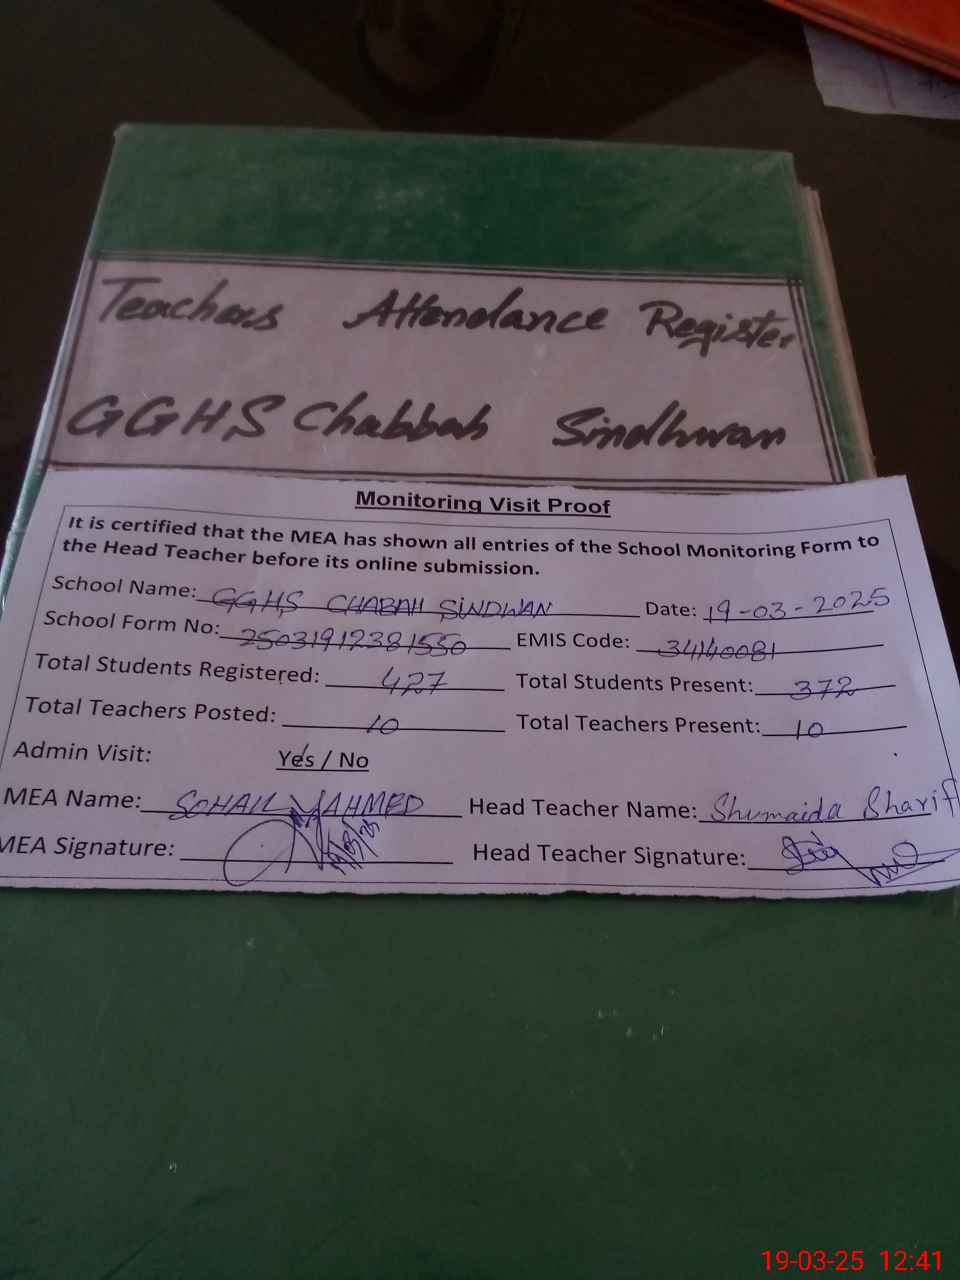 Teachers Attendance Register
GGHS Chabbah Sindhwan
Monitoring Visit Proof
It is certified that the MEA has shown all entries of the School Monitoring Form to
the Head Teacher before its online submission.
School Name: GGHS CHABAH SINDWAN Date: 19-03-2025
School Form No: 25031912381550 EMIS Code: 34140081
Total Students Registered: 427 Total Students Present: 372
Total Teachers Posted: 10 Total Teachers Present: 10
Admin Visit: Yes / No
MEA Name: SOHAIL AHMED Head Teacher Name: Shumaida Sharif
MEA Signature: 19/03/25 Head Teacher Signature:
19-03-25 12:41